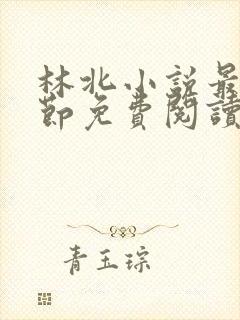 林北小説最
節免費閱讀
青玉琮